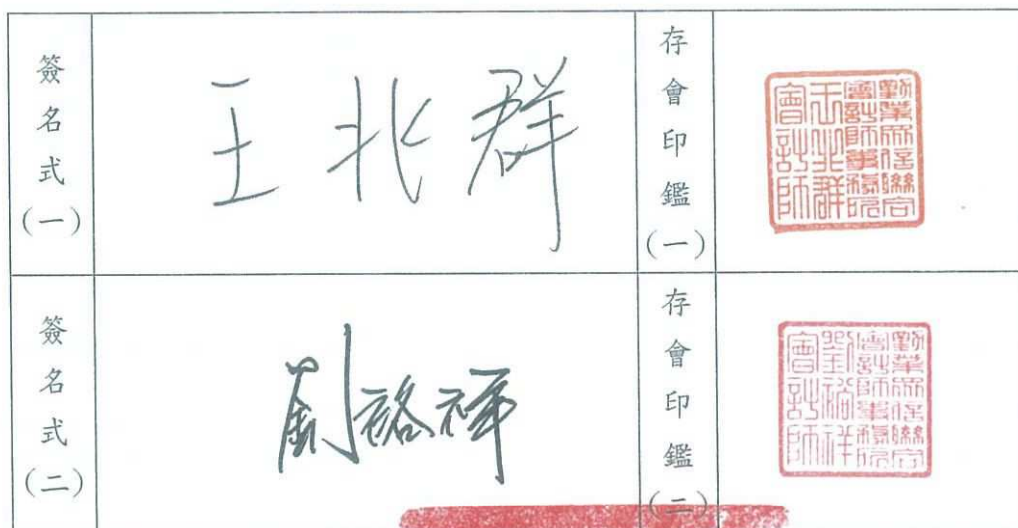 簽名式(一)
王兆群
存會印鑑(一)
勤業眾信聯合
會計師事務所
王兆群
會計師
簽名式(二)
劉裕祥
存會印鑑(二)
勤業眾信聯合
會計師事務所
劉裕祥
會計師